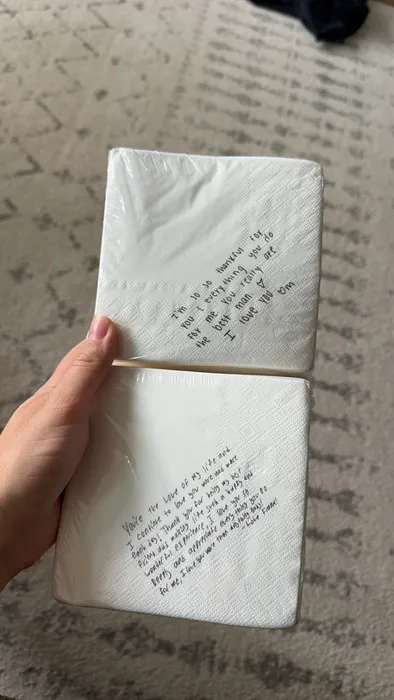 I'm so so thankful for
you & everything you do
for me you really are
the best man ♡
I love you ♡m
You're the love of my life and
I continue to love you more and more
each day! Thank you for being my best
friend and making life such a happy and
wonderful experience, I love you so
deeply and appreciate everything you do
for me, I love you more than anything babe!
Love,